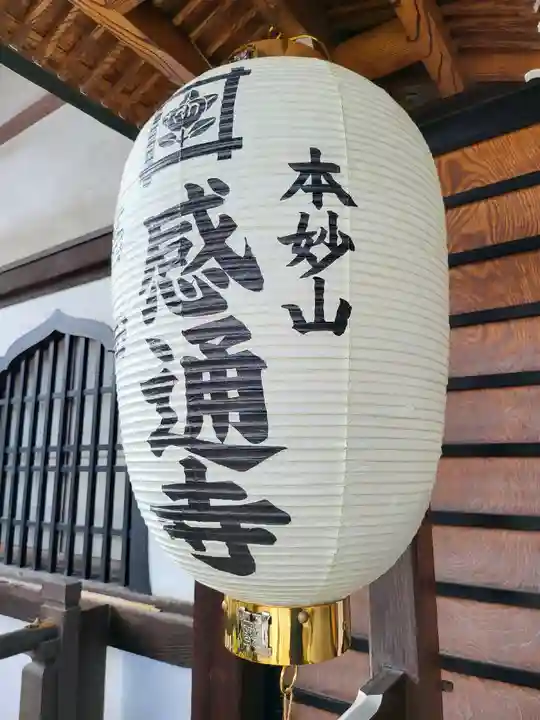 本妙山
感通寺